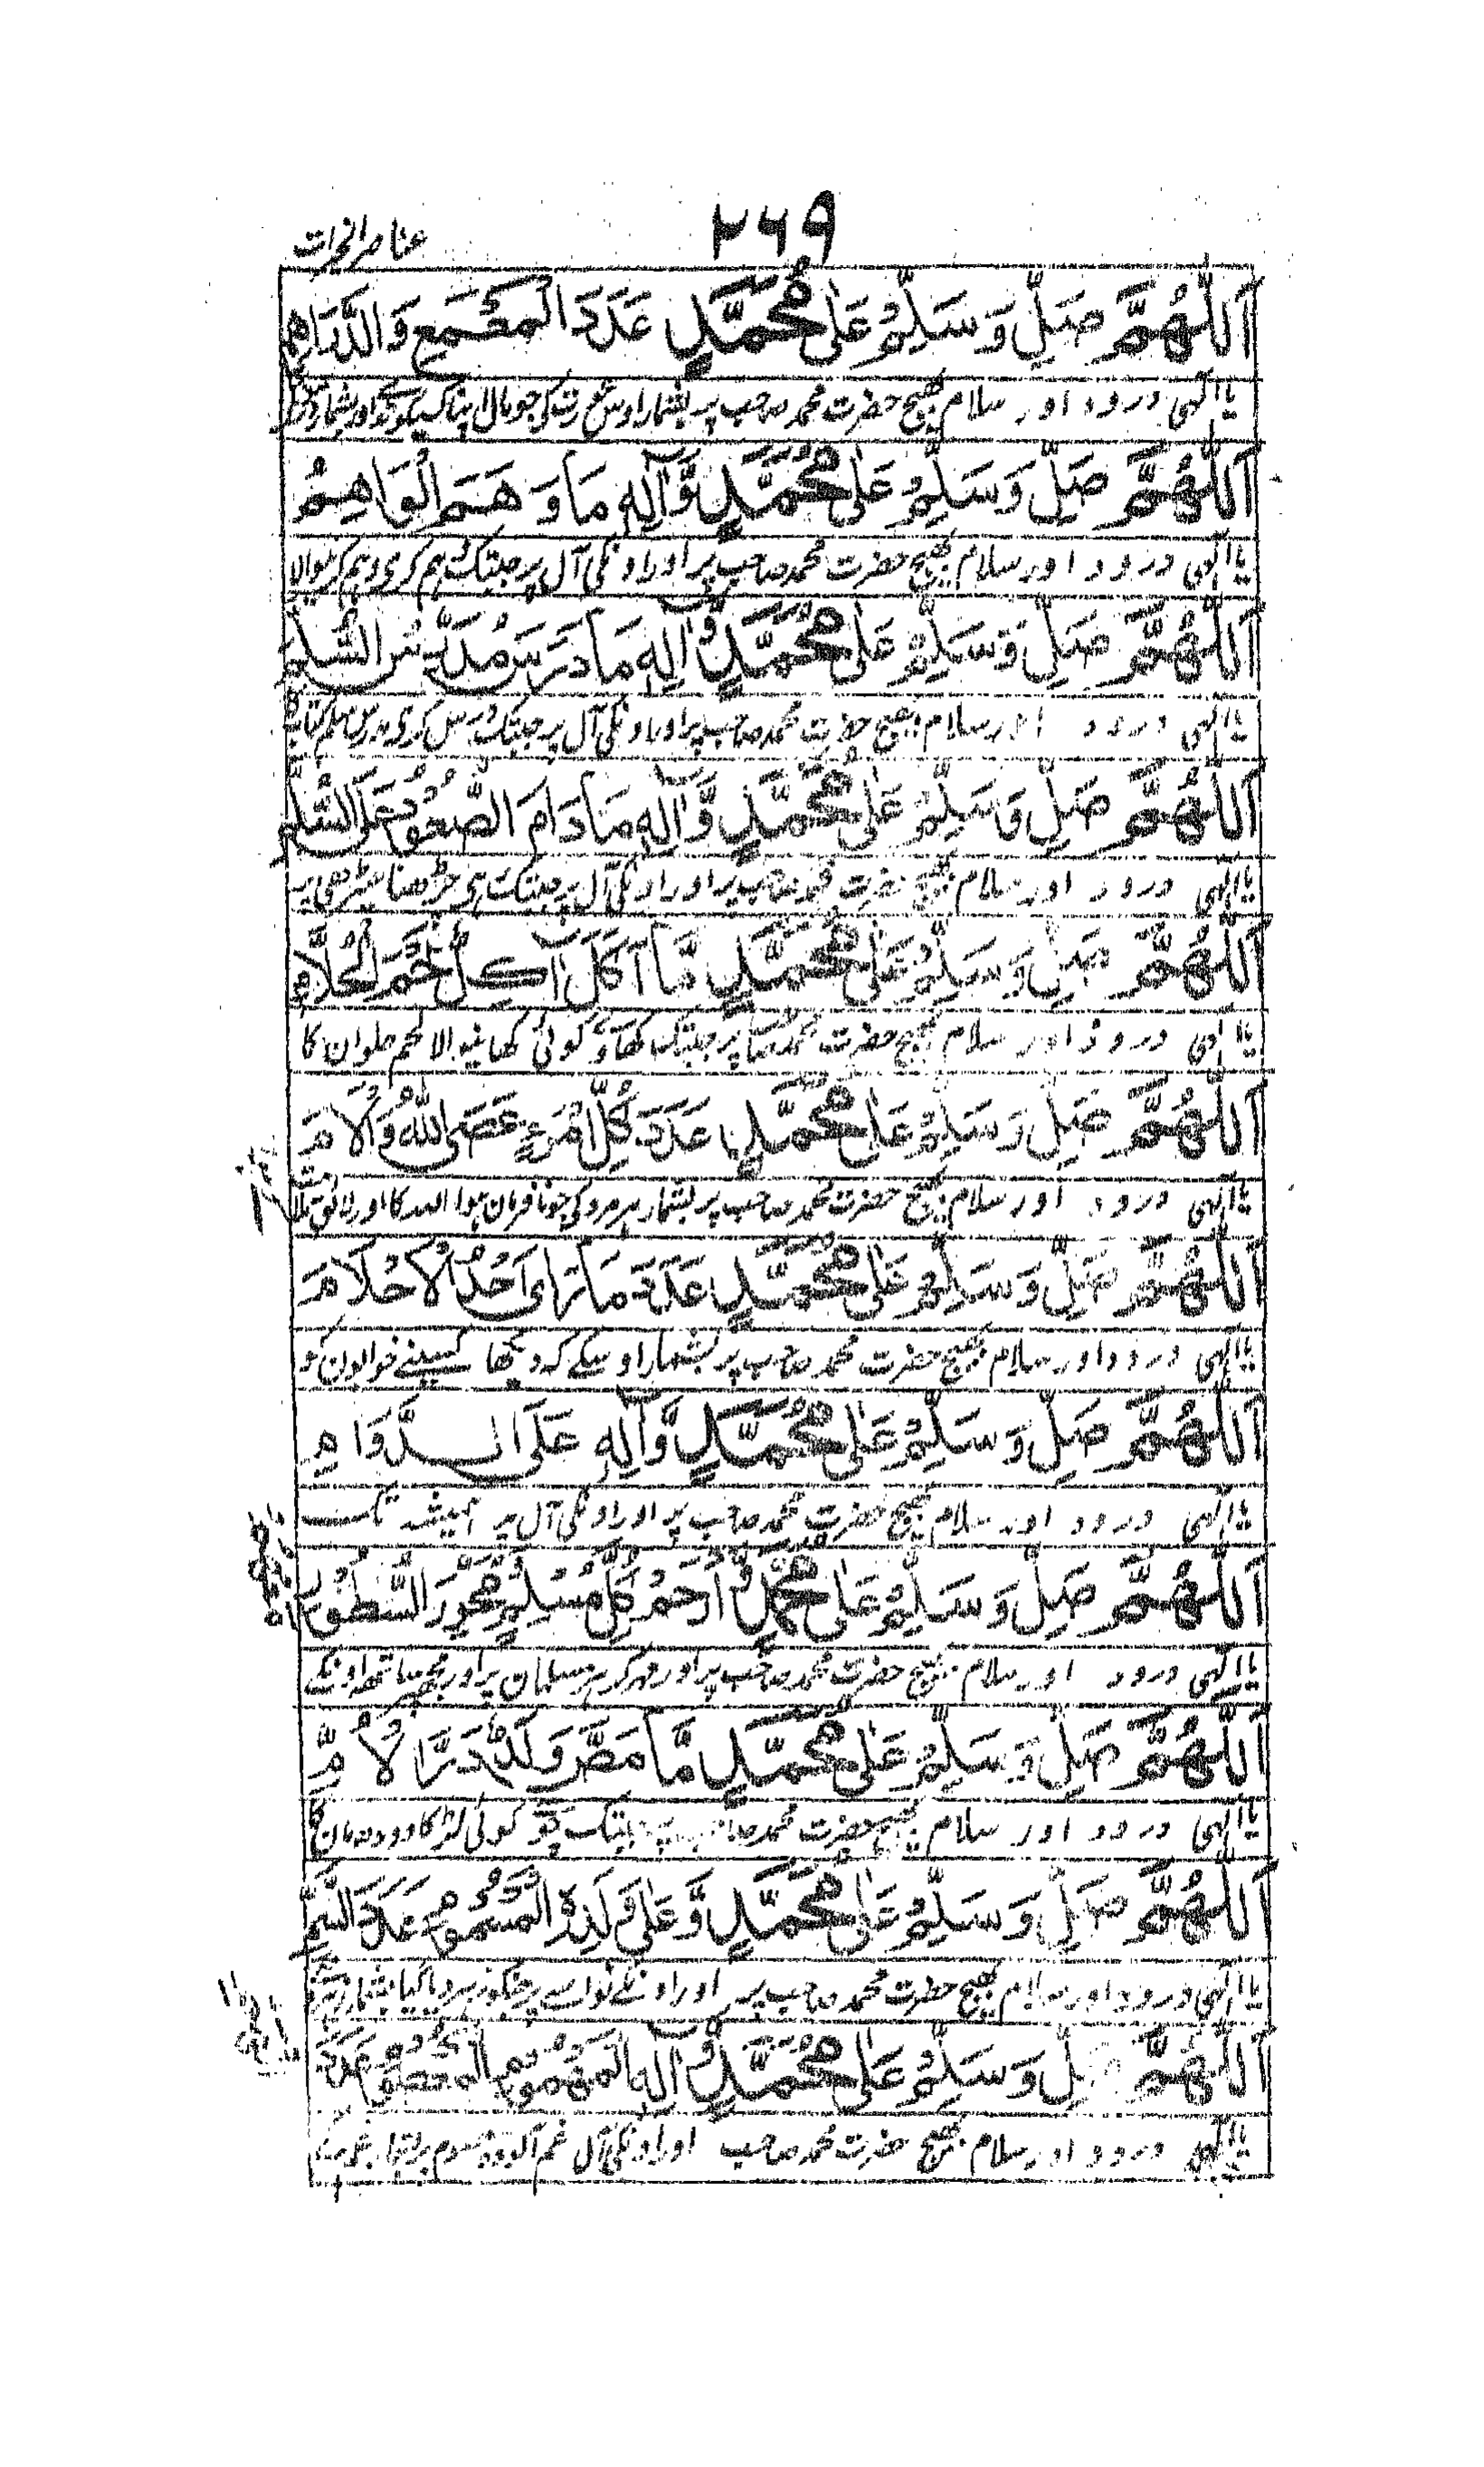 ۲۶۹
عناصر الخیرات
اَللّٰهُمَّ صَلِّ وَسَلِّمْ عَلٰی مُحَمَّدٍ عَدَدَ وَالدَّرَاهِمِ
یا الٰہی درود اور سلام بھیج حضرت محمد صاحب پر بشمار اوس
اَللّٰهُمَّ صَلِّ وَسَلِّمْ عَلٰی مُحَمَّدٍ وَّآلِهٖ مَا وَهَمَ الْوَاهِمُ
یا الٰہی درود اور سلام بھیج حضرت محمد صاحب پر اور اونکی آل پر جبتک وہم کری وہم کرنیوالا
اَللّٰهُمَّ صَلِّ وَسَلِّمْ عَلٰی مُحَمَّدٍ وَّآلِهٖ مَا دَرَسَ مُدَرِّسُ السُّلَّمِ
یا الٰہی درود اور سلام بھیج حضرت محمد صاحب پر اور اونکی آل پر جبتک درس کری مدرس سلم کتاب کا
اَللّٰهُمَّ صَلِّ وَسَلِّمْ عَلٰی مُحَمَّدٍ وَّآلِهٖ مَا دَامَ الصُّعُوْدُ عَلَی السُّلَّمِ
یا الٰہی درود اور سلام بھیج حضرت محمد صاحب پر اور اونکی آل پر جبتک ہی چڑھنا سیڑھی پر
اَللّٰهُمَّ صَلِّ وَسَلِّمْ عَلٰی مُحَمَّدٍ مَّا اَكَلَ آكِلٌ لَحْمَ الْحُلَّامِ
یا الٰہی درود اور سلام بھیج حضرت محمد صاحب پر جبتک کھاوے کوئی کھانیوالا لحم حلوان کا
اَللّٰهُمَّ صَلِّ وَسَلِّمْ عَلٰی مُحَمَّدٍ عَدَدَ كُلِّ امْرَءٍ عَصَی اللّٰهَ وَأَلَامَ
یا الٰہی درود اور سلام بھیج حضرت محمد صاحب پر بشمار ہر مرد کی جو نافرمان ہوا اللہ کا اور لائق ملامت
اَللّٰهُمَّ صَلِّ وَسَلِّمْ عَلٰی مُحَمَّدٍ عَدَدَ مَا رَاٰی اَحَدُ الْاَحْلَامَ
یا الٰہی درود اور سلام بھیج حضرت محمد صاحب پر بشمار اوسکے کہ دیکھا کسینے خوابون کو
اَللّٰهُمَّ صَلِّ وَسَلِّمْ عَلٰی مُحَمَّدٍ وَّآلِهٖ عَلَی الدَّوَامِ
یا الٰہی درود اور سلام بھیج حضرت محمد صاحب پر اور اونکی آل پر ہمیشہ تک
اَللّٰهُمَّ صَلِّ وَسَلِّمْ عَلٰی مُحَمَّدٍ وَّارْحَمْ كُلَّ مُسْلِمٍ مُحَرِّرَ السُّطُوْرِ
یا الٰہی درود اور سلام بھیج حضرت محمد صاحب پر اور مہر کر ہر مسلمان پر اور مجھپر ساتھہ اونکے
اَللّٰهُمَّ صَلِّ وَسَلِّمْ عَلٰی مُحَمَّدٍ مَّا مَصَّ وَلَدٌ دَرَّ الْاُمِّ
یا الٰہی درود اور سلام بھیج حضرت محمد صاحب پر جبتک کوئی لڑکا دودہ مان کا
اَللّٰهُمَّ صَلِّ وَسَلِّمْ عَلٰی مُحَمَّدٍ وَّعَلٰی وَلَدِهِ الْمَسْمُوْمِ عَدَدَ
یا الٰہی درود اور سلام بھیج حضرت محمد صاحب پر اور اونکے نواسے پر جنکو زہر دیا گیا بشمار
اَللّٰهُمَّ صَلِّ وَسَلِّمْ عَلٰی مُحَمَّدٍ وَّآلِهِ الْمَهْمُوْمِ عَدَدَ
یا الٰہی درود اور سلام بھیج حضرت محمد صاحب اور اونکی آل غم آلودہ